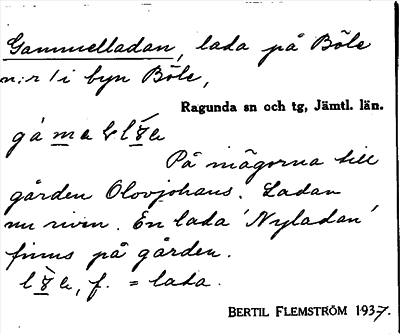 Gammelladan, lada på Böle
n:r 1 i byn Böle,
Ragunda sn och tg, Jämtl. län.
På mågorna till
gården Olovjohans. Ladan
nu riven. En lada 'Nyladan'
finns på gården.
f. = lada.
BERTIL FLEMSTRÖM 1937.